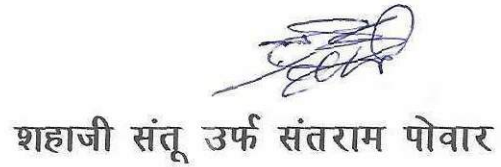 शहाजी संतू उर्फ संतराम पोवार